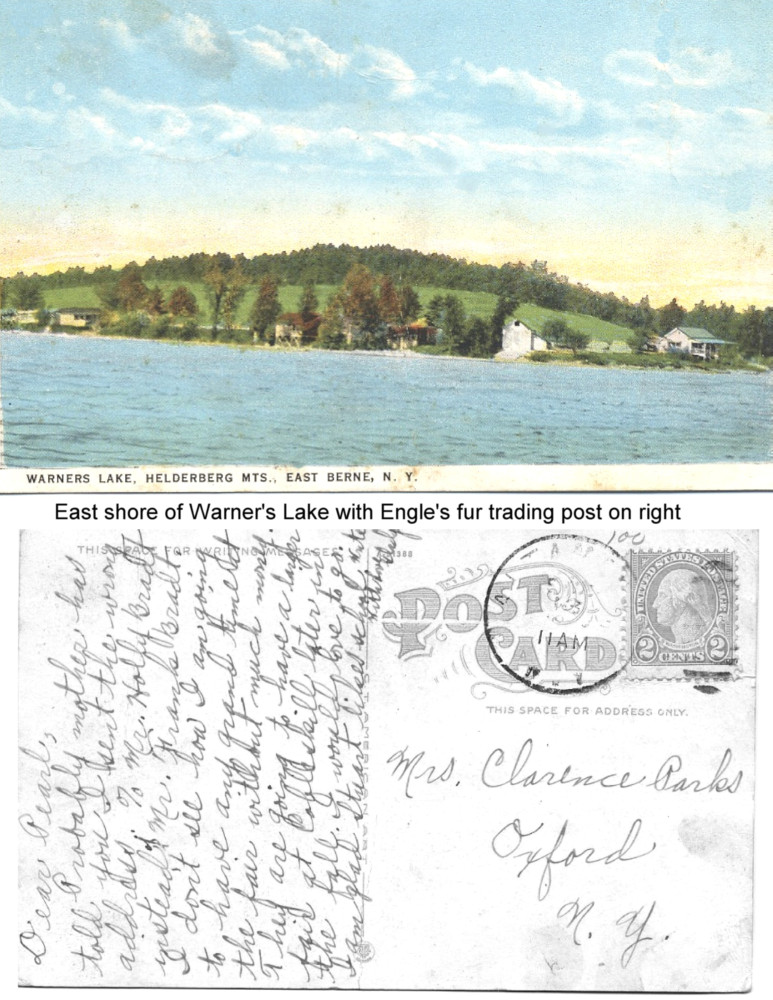 WARNERS LAKE, HELDERBERG MTS., EAST BERNE, N. Y.
East shore of Warner's Lake with Engle's fur trading post on right
THIS SPACE FOR WRITING MESSAGES
Dear Pearl,
Probably mother has
told you I sent the wrong
address to Mr. Holly Brandt
instead of Mr. Frank Brandt.
I don't see how I am going
to have any grand time at
the fair without much money.
They are going to have a larger
fair at Cobleskill later in
the fall. I would love to go.
I am glad Stuart likes school.
388
POST
CARD
11 AM
UNITED STATES POSTAGE
2 CENTS 2
THIS SPACE FOR ADDRESS ONLY.
Mrs. Clarence Parks
Oxford
N. Y.